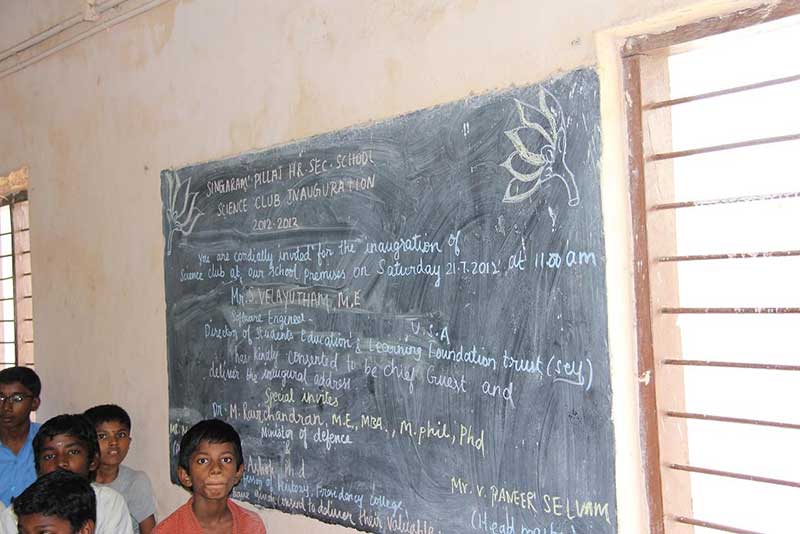 SINGARAM PILLAI HR·SEC·SCHOOL
SCIENCE CLUB INAUGURATION
2012-2012
You are cordially invited for the inaugration of
Science club at our school premises on Saturday 21-7-2012 at 11.00 am
Mr. S. VELAYUTHAM, M.E
Software Engineer - U.S.A
Director of Students Education & Learning Foundation trust (self)
has kindly consented to be chief Guest and
deliver the inaugural address.
Special invites
Dr. M. Ravichandran, M.E., MBA., M. phil, Phd
Minister of defence
&
Ashok, Ph.d
of History, Presidency college,
have consented to deliver their valuable
Mr. V. PANEER SELVAM
(Head master)